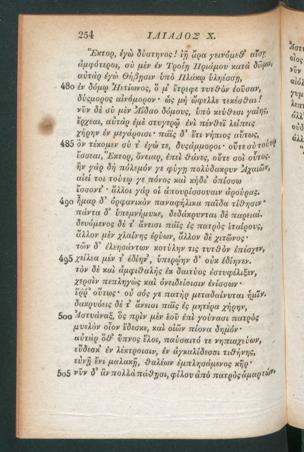 254 ΙΛΙΑΔΟΣ Χ.
Ἕκτορ, ἐγὼ δύστηνος! ἰῇ ἄρα γεινόμεθ' αἴσῃ
ἀμφότεροι, σὺ μὲν ἐν Τροίῃ Πριάμου κατὰ δῶμα,
αὐτὰρ ἐγὼ Θήβῃσιν ὑπὸ Πλάκῳ ὑληέσσῃ,
480 ἐν δόμῳ Ἠετίωνος, ὅ μ' ἔτρεφε τυτθὸν ἐοῦσαν,
δύσμορος αἰνόμορον· ὡς μὴ ὤφελλε τεκέσθαι!
νῦν δὲ σὺ μὲν Ἀΐδαο δόμους, ὑπὸ κεύθεσι γαίης,
ἔρχεαι, αὐτὰρ ἐμὲ στυγερῷ ἐνὶ πένθεϊ λείπεις
χήρην ἐν μεγάροισι· παῖς δ' ἔτι νήπιος αὔτως,
485 ὃν τέκομεν σύ τ' ἐγώ τε, δυσάμμοροι· οὔτε σὺ τούτῳ
ἔσσεαι, Ἕκτορ, ὄνειαρ, ἐπεὶ θάνες, οὔτε σοὶ οὗτος.
ἢν γὰρ δὴ πόλεμόν γε φύγῃ πολύδακρυν Ἀχαιῶν,
αἰεί τοι τούτῳ γε πόνος καὶ κήδε' ὀπίσσω
ἔσσοντ'· ἄλλοι γάρ οἱ ἀπουρίσσουσιν ἀρούρας.
490 ἦμαρ δ' ὀρφανικὸν παναφήλικα παῖδα τίθησιν·
πάντα δ' ὑπεμνήμυκε, δεδάκρυνται δὲ παρειαί.
δευόμενος δέ τ' ἄνεισι παῖς ἐς πατρὸς ἑταίρους,
ἄλλον μὲν χλαίνης ἐρύων, ἄλλον δὲ χιτῶνος·
τῶν δ' ἐλεησάντων κοτύλην τις τυτθὸν ἐπέσχεν,
495 χείλεα μέν τ' ἐδίην', ὑπερῴην δ' οὐκ ἐδίηνεν.
τὸν δὲ καὶ ἀμφιθαλὴς ἐκ δαιτύος ἐστυφέλιξεν,
χερσὶν πεπληγὼς καὶ ὀνειδείοισιν ἐνίσσων·
ἔῤῥ' οὕτως· οὐ σός γε πατὴρ μεταδαίνυται ἡμῖν.
δακρυόεις δέ τ' ἄνεισι παῖς ἐς μητέρα χήρην,
500 Ἀστυάναξ, ὃς πρὶν μὲν ἑοῦ ἐπὶ γούνασι πατρὸς
μυελὸν οἶον ἔδεσκε, καὶ οἰῶν πίονα δημόν·
αὐτὰρ ὅθ' ὕπνος ἕλοι, παύσαιτό τε νηπιαχεύων,
εὕδεσκ' ἐν λέκτροισιν, ἐν ἀγκαλίδεσσι τιθήνης,
εὐνῇ ἔνι μαλακῇ, θαλέων ἐμπλησάμενος κῆρ·
505 νῦν δ' ἂν πολλὰ πάθῃσι, φίλου ἀπὸ πατρὸς ἁμαρτών·